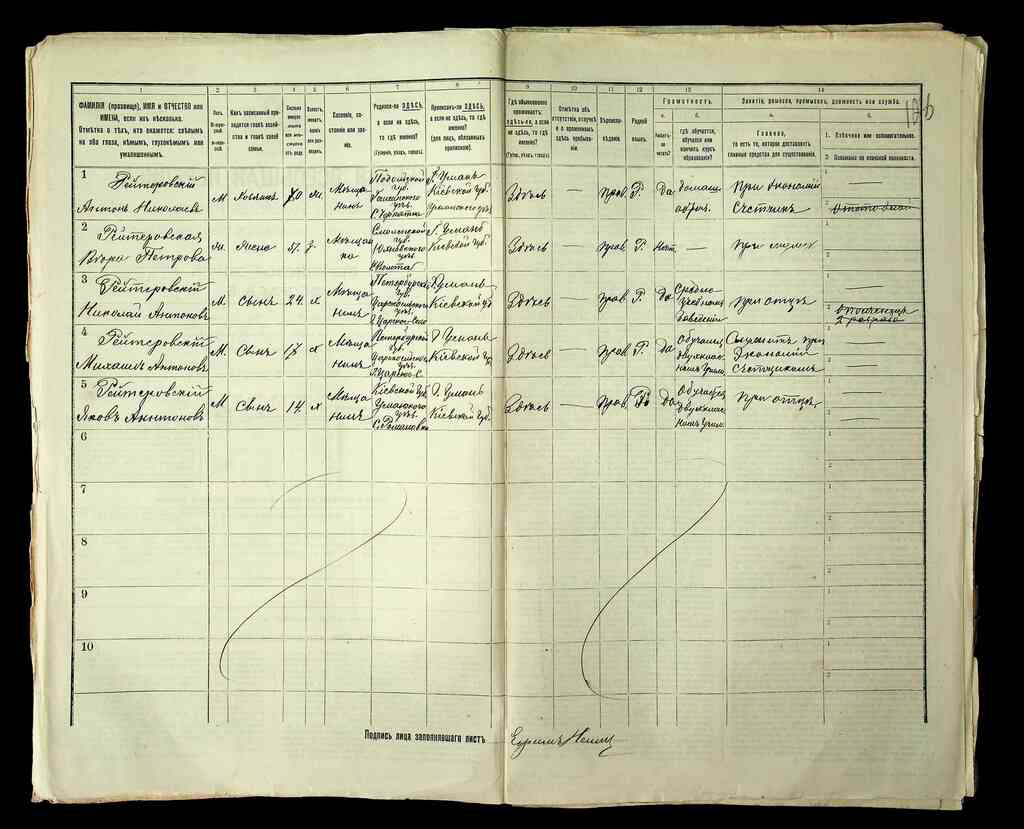 196
1 2 3 4 5 6 7 8 9 10 11 12 13 14
ФАМИЛІЯ (прозвище), ИМЯ и ОТЧЕСТВО или
ИМЕНА, если ихъ нѣсколько.
Отмѣтка о тѣхъ, кто окажется: слѣпымъ
на оба глаза, нѣмымъ, глухонѣмымъ или
умалишеннымъ.
Полъ.
Какъ записанный при-
ходится главѣ хозяй-
ства и главѣ своей
семьи.
Сословіе, со-
стояніе или зва-
ніе.
Родился-ли ЗДѢСЬ,
а если не здѣсь,
то гдѣ именно?
(Губернія, уѣздъ, городъ).
Приписанъ-ли ЗДѢСЬ,
а если не здѣсь, то гдѣ
именно?
(для лицъ, обязанныхъ
припискою).
Гдѣ обыкновенно
проживаетъ:
здѣсь-ли, а если
не здѣсь, то гдѣ
именно?
(Губ., уѣздъ, городъ).
Отмѣтка объ
отсутствіи, отлучкѣ
и о временномъ
здѣсь пребыва-
ніи.
Вѣроиспо-
вѣданіе.
Родной
языкъ.
Грамотность.
а. б.
Умѣетъ-ли
читать?
гдѣ обучается,
обучался или
кончилъ курсъ
образованія?
Занятіе, ремесло, промыселъ, должность или служба.
а. б.
Главное,
то есть то, которое доставляетъ
главныя средства для существованія.
1. Побочное или вспомогательное.
2. Положеніе по воинской повинности.
1
Рейтеровскій
Антонъ Николаевъ
М Хозяинъ 70 ж. Мѣща
нинъ
Подольской
губ.
г. Умань
Кіевской губ.
Уманского уѣз
Здѣсь — прав. Р. Да домаш.
образ.
При экономіи
Счетчикъ
1 —
2
2
Рейтеровская
Вѣра Петрова
ж. Жена 57 з. Мѣщан
ка
Смоленской
губ.
г. Умань
Кіевской губ.
Здѣсь — прав. Р. Нѣтъ —
При мужѣ
1 —
2
3
Рейтеровскій
Николай Антоновъ
М. Сынъ 24 х Мѣща
нинъ
Петербургск
губ.
Царскосельского
уѣз.
г. Царское Село
г. Умань
Кіевской губ
Здѣсь — прав. Р. Да Средне
учебномъ
заведеніи
При отцѣ
1 —
2 ополченецъ
2 разряда
4
Рейтеровскій
Михаилъ Антоновъ
М Сынъ 17 х Мѣща
нинъ
Петербургской
губ.
Царскосельского
уѣз.
г. Царское С.
г. Умань
Кіевской губ
Здѣсь — прав. Р. да Обучался
двухклас
номъ учил.
Служитъ при
Экономіи
Счетчикомъ
1 —
2 —
5
Рейтеровскій
Яковъ Антоновъ
М Сынъ 14 х Мѣща
нинъ
Кіевской губ
Уманского
уѣз.
с. Романовка
г. Умань
Кіевской губ
Здѣсь — прав. Р. Да Обучается
двухклас
номъ учил.
При отцѣ
1 —
2 —
6
1
2
7
1
2
8
1
2
9
1
2
10
1
2
Подпись лица заполнявшаго листъ